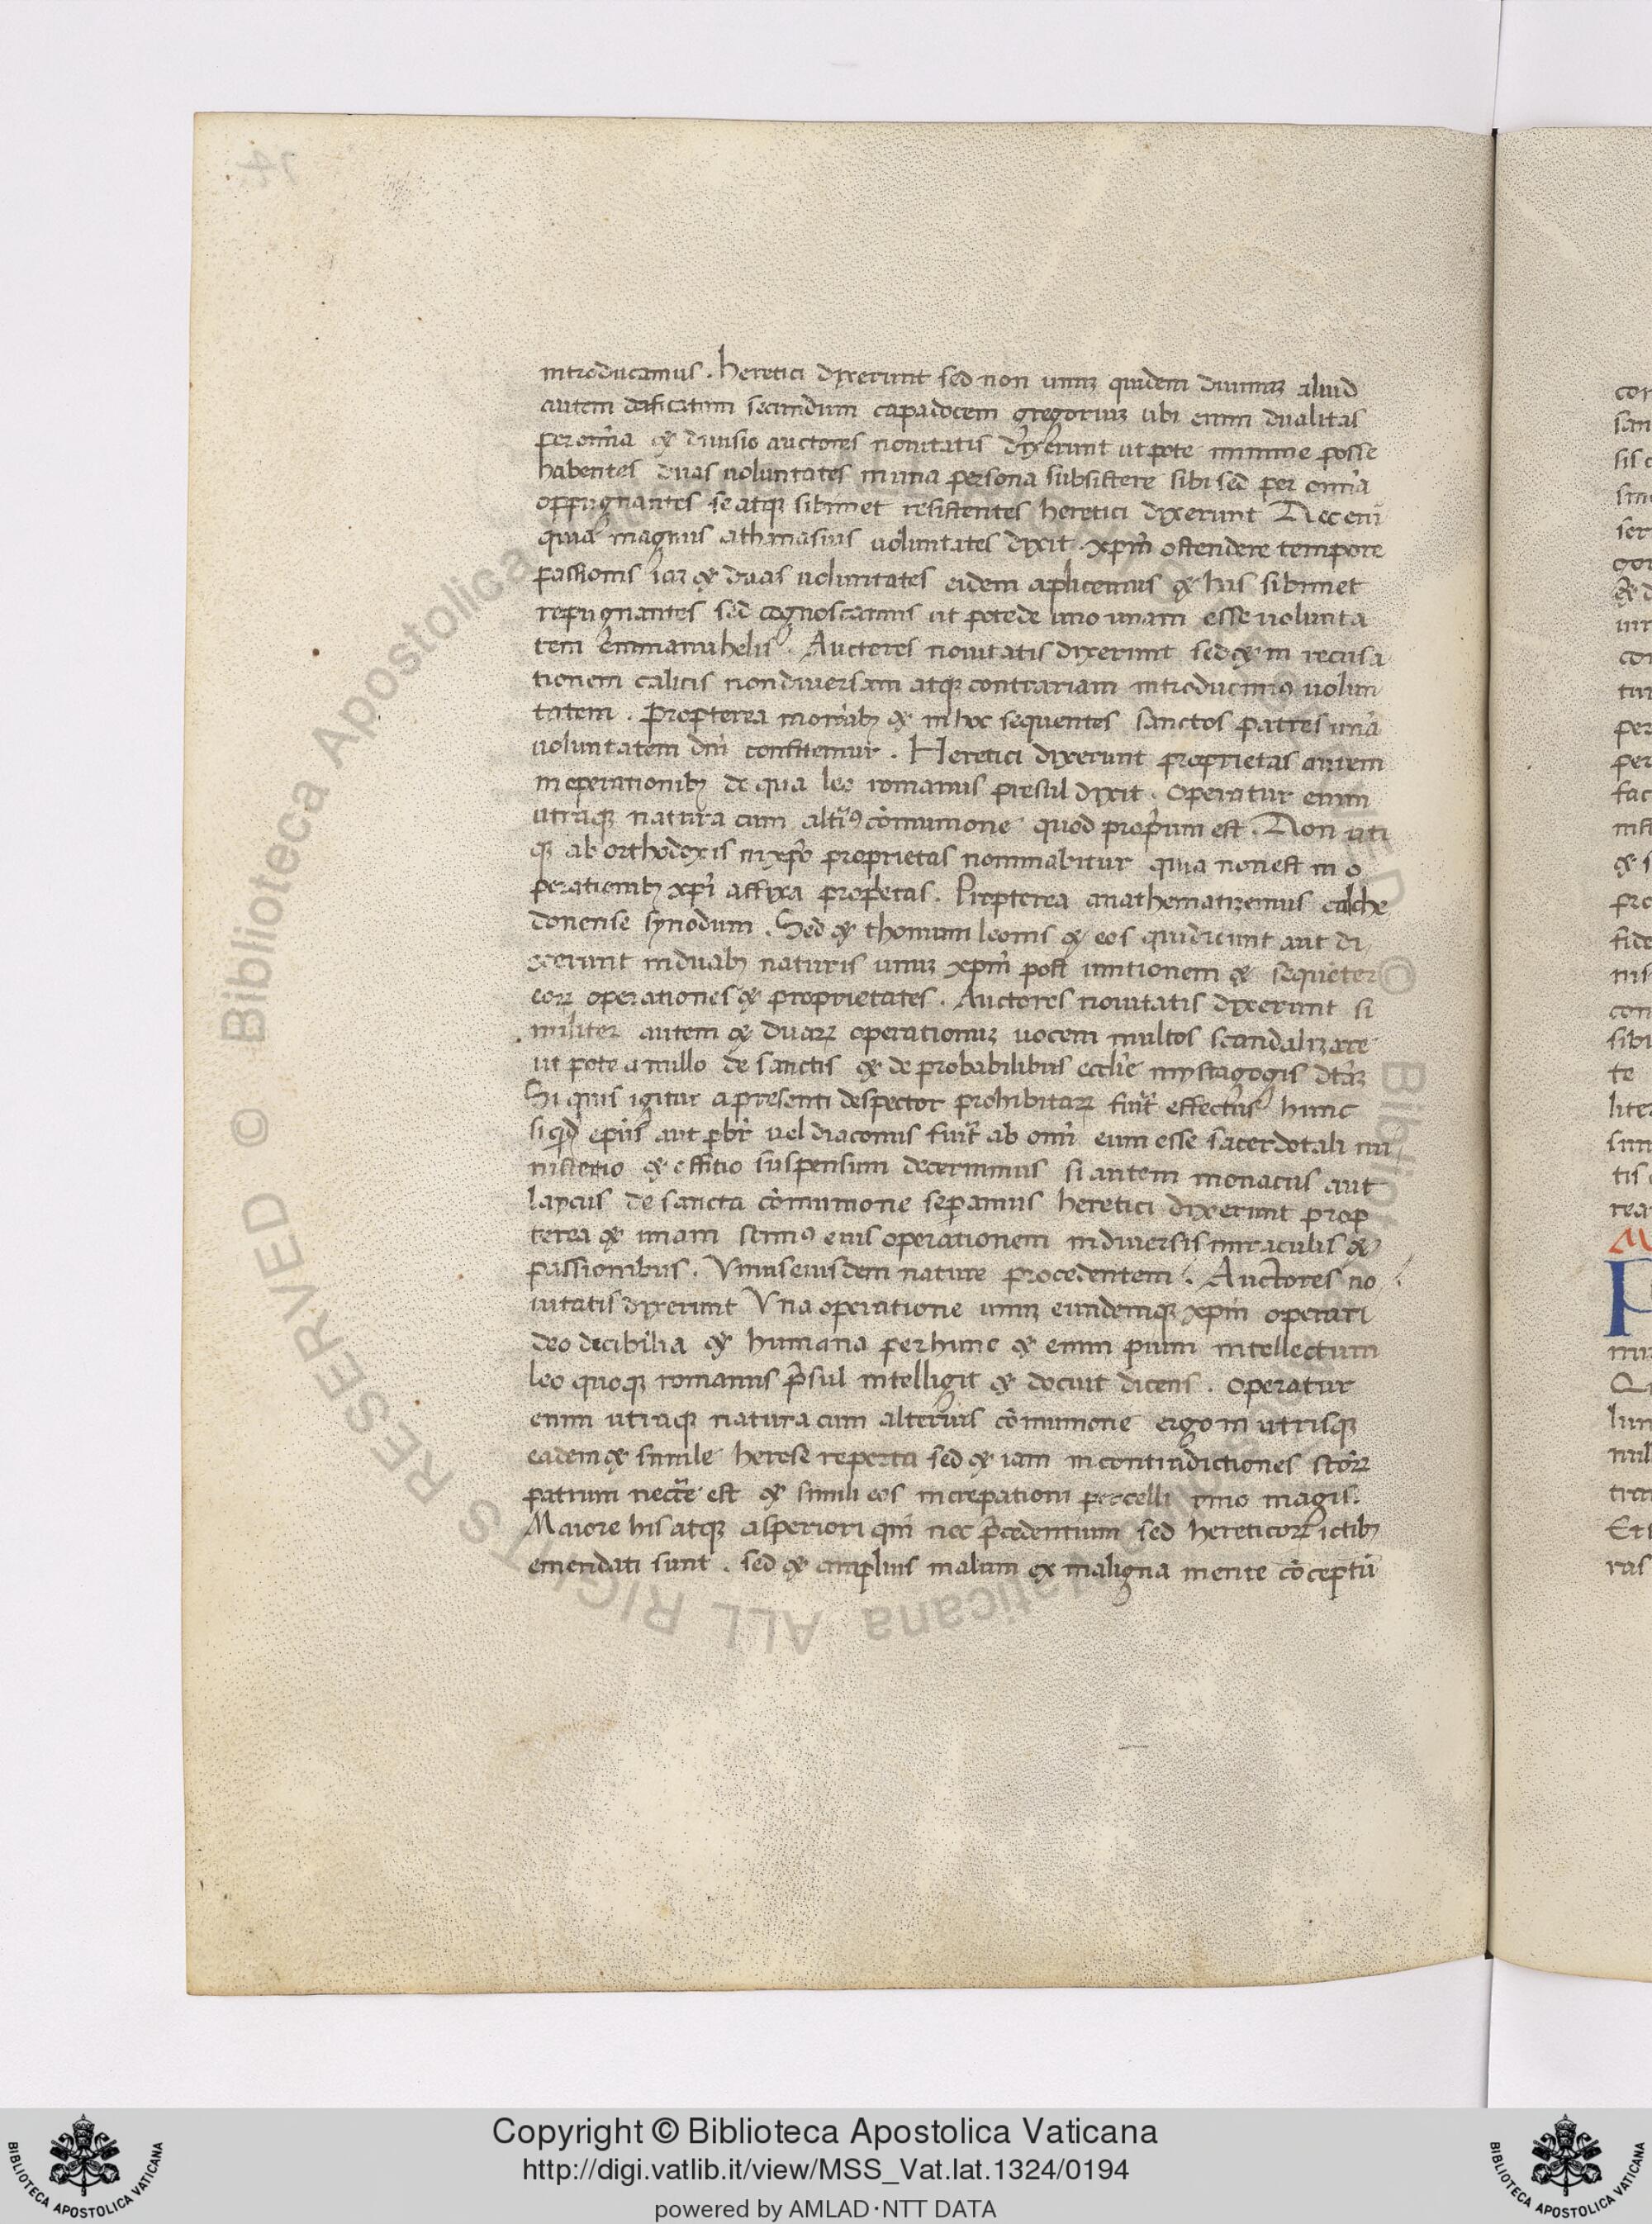 introducamus . heretici dixerunt sed non unuz quidem diuinuz aliud
autem deificatum secundum capadocem gregoriuz ubi enim dualitas
per oi͞a & diuisio auctores nouitatis dixerunt ut pote minime posse
habentes duas uoluntates in una persona subsistere sibi sed per omi͞a
oppugnantes se atqꝫ sibimet resistentes heretici dixerunt Nec eni͞
quia magnus athanasius uoluntates dixit . xpm͞ ostendere tempore
passionis iaꝫ & duas uoluntates eidem aplicemus & has sibimet
repugnantes sed cognoscamus ut pote de uno unam esse uolunta
tem emmanuhelis . Auctores nouitatis dixerunt sed & in recusa
tionem calicis non diuersam atqꝫ contrariam introducimꝰ uolun
tatem . Propterea in om͞ibꝫ & in hoc sequentes sanctos patres una͞
uoluntatem dn͞i confitemur . Heretici dixerunt proprietas autem
in operationibꝫ de qua leo romanus presul dixit . Operatur enim
utraqꝫ natura cum altiꝰ co͞munione quod proprium est . Non uti
qꝫ ab orthodoxis in xp͞o proprietas nominabitur quia non est in o
perationibꝫ xpi͞ affixa proprietas . Propterea anathematizemus calche
donense synodum . Sed & thomum leonis & eos qui dicunt aut di
xerunt in duabꝫ naturis unuꝫ xpm͞ post unitionem & sequeter
eoꝝ operationes & proprietates . Auctores nouitatis dixerunt si
militer autem & duaꝝ operationuꝫ uocem multos scandalizare
ut pote a nullo de sanctis & de probabilibus eccli͞e mystagogis dt͞aꝫ
Si quis igitur a presenti despector prohibitaꝝ fuit͞ effectus hunc
si qd͞ epu͞s aut pb͞r uel diaconus fuit͞ ab omi͞ eum esse sacerdotali mi
nisterio & offitio suspensum decernimus si autem monacus aut
laycus de sancta co͞munione sepamus heretici dixerunt prop
terea & unam scimꝰ eius operationem in diuersis miraculis &
passionibus . Vnius eiusdem nature procedentem . Auctores no
uitatis dixerunt Vna operatione unuꝫ eundemqꝫ xpm͞ operari
deo decibilia & humana per hunc & enim pium intellectum
leo quoqꝫ romanus p͞sul intelligit & docuit dicens . Operatur
enim utraqꝫ natura cum alterius co͞munione ergo in utrisqꝫ
eadem & simile herese reperta sed & iam in contradictiones sco͞ꝝ
patrum necc͞e est & simili eos increpationi percelli imo magis .
Maiore his atqꝫ asperiori qm͞ nec p͞cedentium sed hereticoꝝ ictibꝫ
emendati sunt . sed & amplius malum ex maligna mente co͞ceptu͞
Copyright © Biblioteca Apostolica Vaticana
http://digi.vatlib.it/view/MSS_Vat.lat.1324/0194
powered by AMLAD·NTT DATA